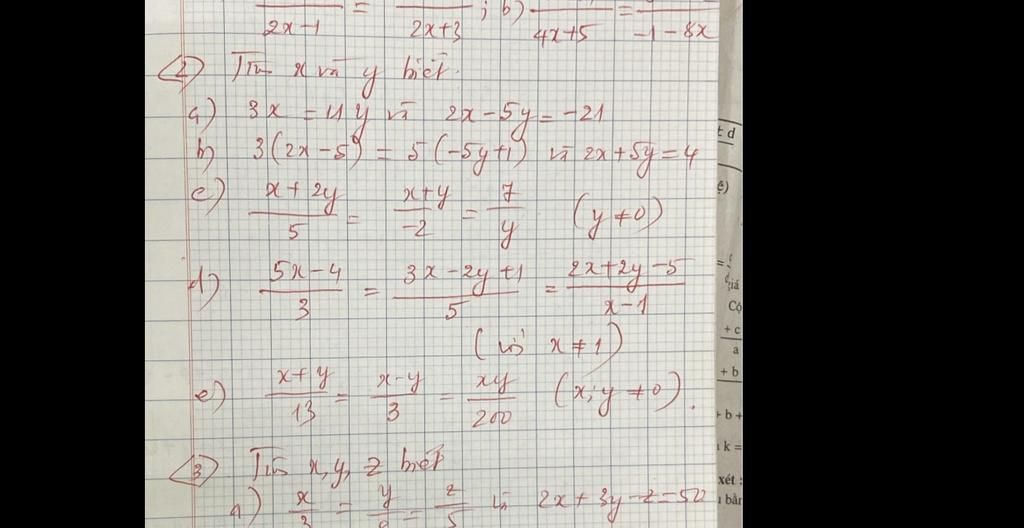 /2x-1 = /2x+3 ; b) /4x+5 = /-1-8x
2) Tìm x và y biết.
a) 3x = 4y và 2x-5y = -21
b) 3(2x-5) = 5(-5y+1) và 2x+5y=4
c) (x+2y)/5 = (x+y)/-2 = 7/y (y≠0)
d) (5x-4)/3 = (3x-2y+1)/5 = (2x+2y-5)/(x-1)
(với x≠1)
e) (x+y)/13 = (x-y)/3 = xy/200 (x;y ≠0).
3) Tìm x, y, z biết
a) x/3 = y/ = z/5 và 2x+3y-z=50
t d
giá
Có
+ c
a
+ b
+ b +
k =
xét :
bằn